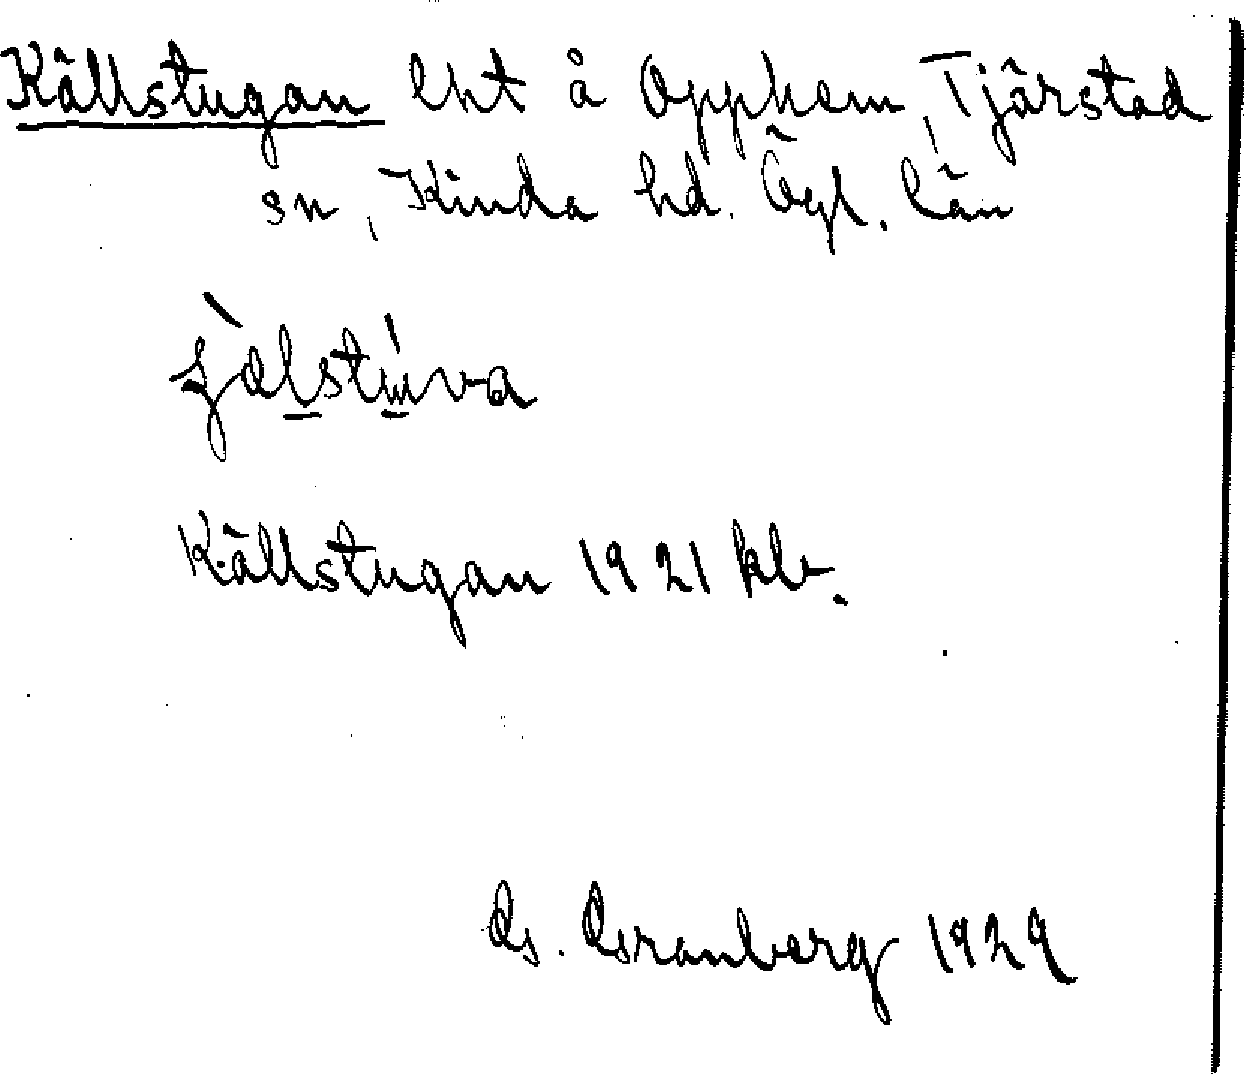 Källstugan lht å Opphem, Tjärstad
sn, Kinda hd. Ögl. län
Källstugan 1921 klr.
G. Granberg 1929